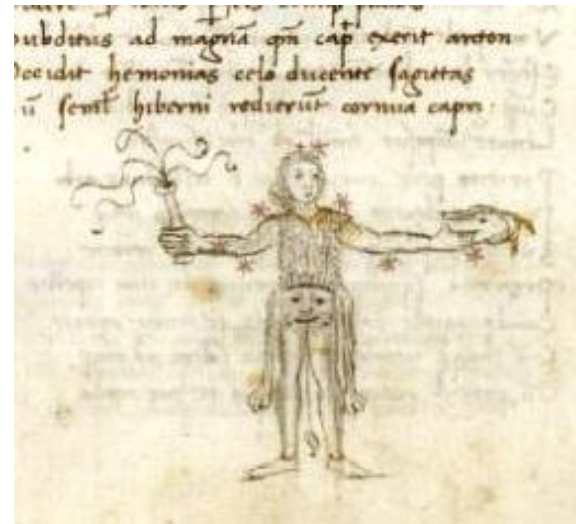 subditus ad magnã qm̃ cap̃ exerit arcton
Occidit hemonias celo ducente sagittas
ũ semł hiberni redierũt cornua capri .